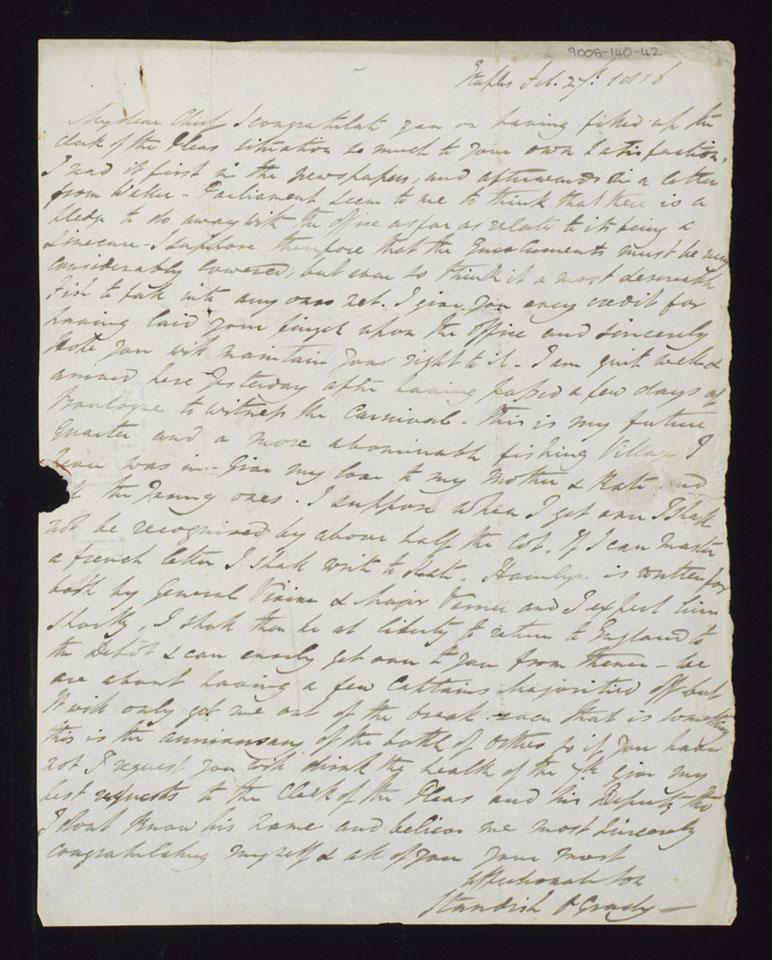 9005-140-42
Etaples Feb. 27th. 1816
My dear Chief I congratulate you on having filled up the
Clerk of the Pleas situation so much to your own satisfaction,
I read it first in the newspapers, and afterwards in a letter
from Waller - Parliament seem to me to think that there is a
pledge to do away with the office as far as relate to its being a
Sinecure - I suppose therefore that the Emoluments must be very
considerably lowered, but even so think it a most desireable
fish to fall into any ones net. I give you every credit for
having laid your finger upon the office and sincerely
hope you will maintain your right to it - I am quite well &
arrived here Yesterday after having passed a few days at
Boulogne to witness the Carnival - this is my future
Quarter and a more abominable fishing Village I
never was in - Give my love to my Mother & Kate and
all the Young ones. I suppose when I get over I shall
not be recognised by above half the lot. If I can master
a french letter I shall write to Kate. Hamlyn is written for
both by General Vivian & Major Verner and I expect him
shortly, I shall then be at liberty to return to England to
the Depôt & can easily get over to you from thence - we
are about having a few Captains Majoritied off but
it will only get me out of the break - even that is something
this is the anniversary of the battle of Orthes so if you have
not I request you will drink the health of the 7th Give my
best respects to the Clerk of the Pleas and his Deputy tho
I dont know his name and believe me most sincerely
congratulating myself & all of you your most
affectionate Son
Standish O Grady